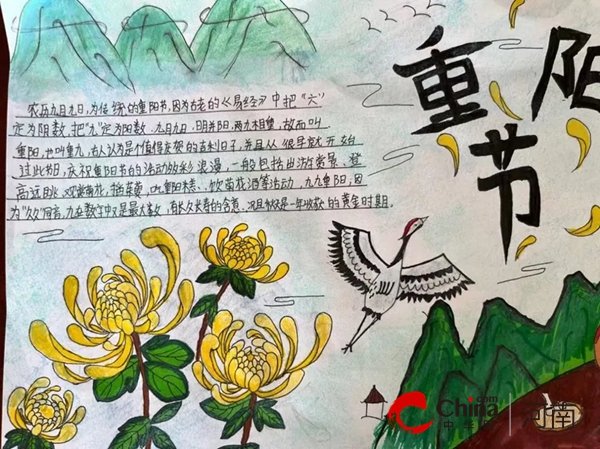 重阳
节
农历九月九日,为传统的重阳节,因为古老的《易经》中把“六”
定为阴数,把“九”定为阳数,九月九日,日月并阳,两九相重,故而叫
重阳,也叫重九,古人认为是个值得庆贺的吉利日子,并且从很早就开始
过此节日,庆祝重阳节的活动多彩浪漫,一般包括出游赏景、登
高远眺、观赏菊花、插茱萸、吃重阳糕、饮菊花酒等活动,九九重阳,因
为“久久”同音,九在数字中又是最大数,有长久长寿的含意,况且秋季是一年收获的黄金时期。
China.com